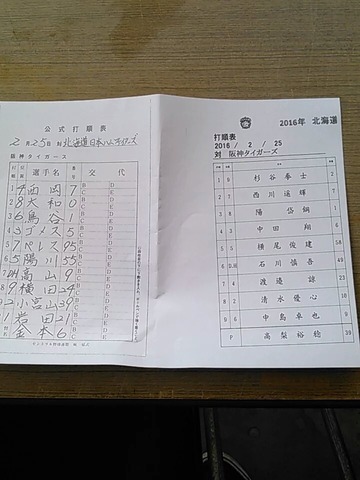 公式打順表
2月25日 対 北海道日本ハムファイターズ
阪神タイガース
位置 選手名 番号 交代
1 4 西岡 7
2 8 大和 0
3 6 鳥谷 1
4 3 ゴメス 5
5 7 ペレス 95
6 5 陽川 55
7 DH 高山 9
8 9 横田 24
9 2 小宮山 39
1 岩田 21
金本 6
2016年 北海道
打順表
2016 / 2 / 25
対 阪神タイガース
1 杉谷拳士
2 7 西川遥輝 7
3 8 陽岱鋼 1
4 3 中田翔 6
5 横尾俊建 58
6 D.H 石川慎吾 49
7 渡邉諒 23
8 2 清水優心
9 6 中島卓也
P 高梨裕稔 39